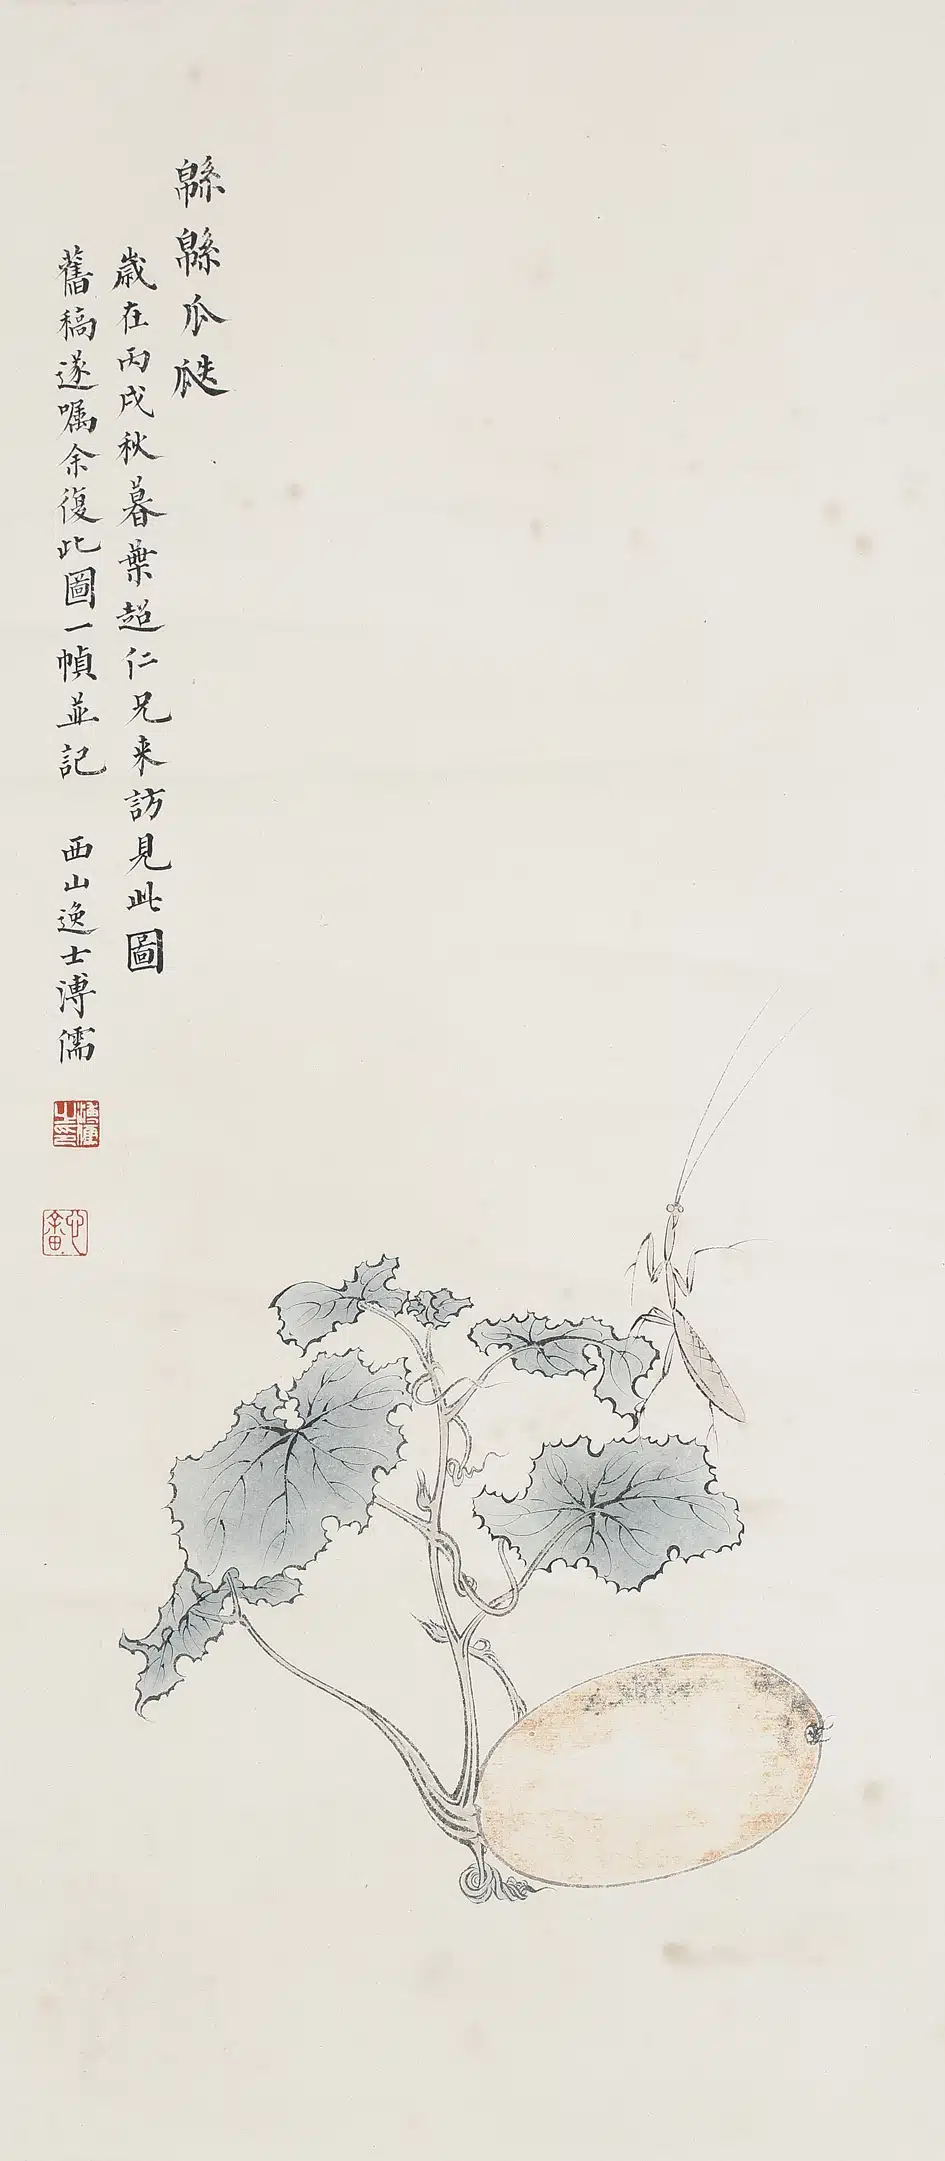 緜緜瓜瓞
歲在丙戌秋暮葉超仁兄来訪見此圖
舊稿遂嘱余復此圖一幀並記 西山逸士溥儒
溥儒之印